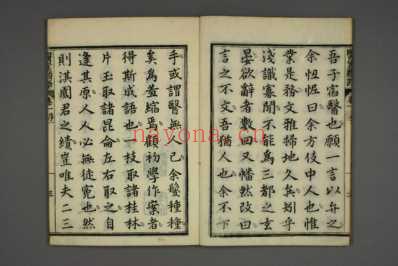 吾子富醫也願一言以弁之
余忸怩曰余方伎中人也惟
業是務文雅掃地久矣矧乎
淺識寡聞不能為三都之玄
晏欲辭者數回又幡然改曰
言之不文吾猶人也余不下
手或謂醫無已余鬢種種
矣為益縮焉顧初學作案者
得斯成語也一枝取諸桂林
片玉取諸昆侖左右取之自
逢其原人人必無徒寃也然
則淇園君之績豈唯夫二三
nayona.cn